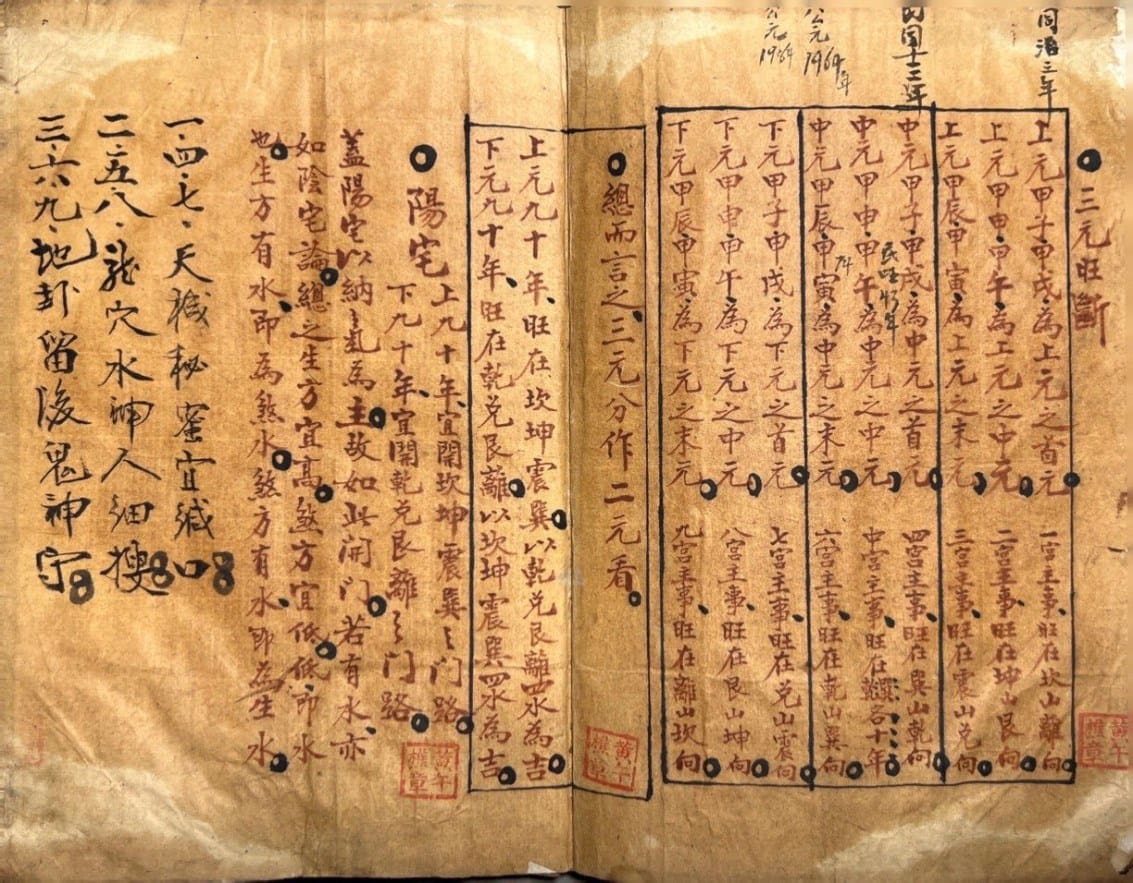 同治三年
民国十三年
公元1964年
公元1984
三元旺斷
上元甲子甲戌為上元之首元 一宮主事旺在坎山離向
上元甲申甲午為上元之中元 二宮主事旺在坤山艮向
上元甲辰甲寅為上元之末元 三宮主事旺在震山兌向
中元甲子甲戌為中元之首元 四宮主事旺在巽山乾向
中元甲申甲午為中元之中元 中宮主事旺在乾巽各十年
中元甲辰甲寅為中元之末元 六宮主事旺在乾山巽向
下元甲子甲戌為下元之首元 七宮主事旺在兌山震向
下元甲申甲午為下元之中元 八宮主事旺在艮山坤向
下元甲辰甲寅為下元之末元 九宮主事旺在離山坎向
總而言之三元分作二元看
上元九十年旺在坎坤震巽以乾兌艮離四水為吉
下元九十年旺在乾兌艮離以坎坤震巽四水為吉
陽宅
上九十年宜開坎坤震巽之门路
下九十年宜開乾兌艮離之门路
蓋陽宅以納之氣為主故如此開门若有水亦
如陰宅論總之生方宜高煞方宜低低即水
也生方有水即為煞水煞方有水即為生水
一四七天機秘密宜緘口
二五八龍穴水神人細搜
三六九地卦留後鬼神守
黃午
權章
黃午
權章
黃午
權章